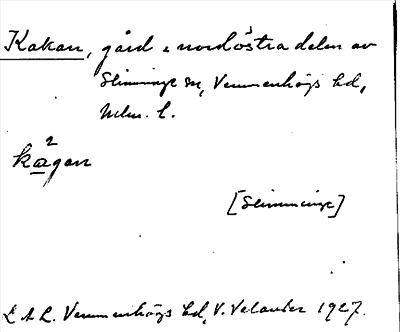 Kakan, gård i nordöstra delen av
Slimminge sn, Vemmenhögs hd,
Mlm. l.
2
kagan
[Slimminge]
L A L. Vemmenhögs hd, V. Velander 1927.